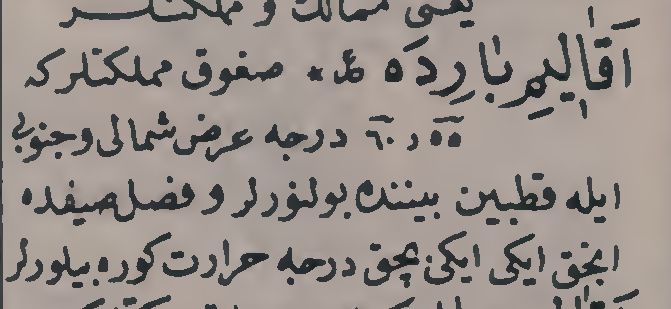 یعنی ممالك و مملكتلر
اَقَالِیمِ بَارِدَه صغوق مملكتلركه
٥٥ ر ٦٠ درجه عرض شمالی و جنوبی
ایله قطبین بیننده بولنورلر و فصل صیفده
انجق ایكی ایكی بچق درجه حرارت كوره بیلورلر